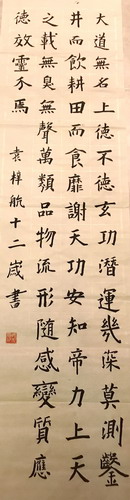 大道無名上德不德玄功潛運幾深莫測鑿
井而飲耕田而食靡謝天功安知帝力上天
之載無臭無聲萬類品物流形隨感變質應
德效靈不焉
袁梓航十二歲書